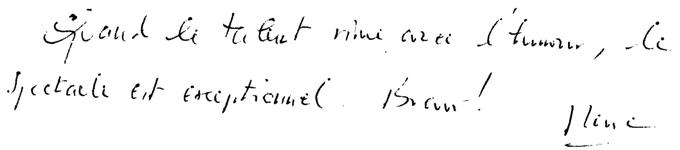 Quand le talent rime avec l'humour, le
spectacle est exceptionnel. Bravo!